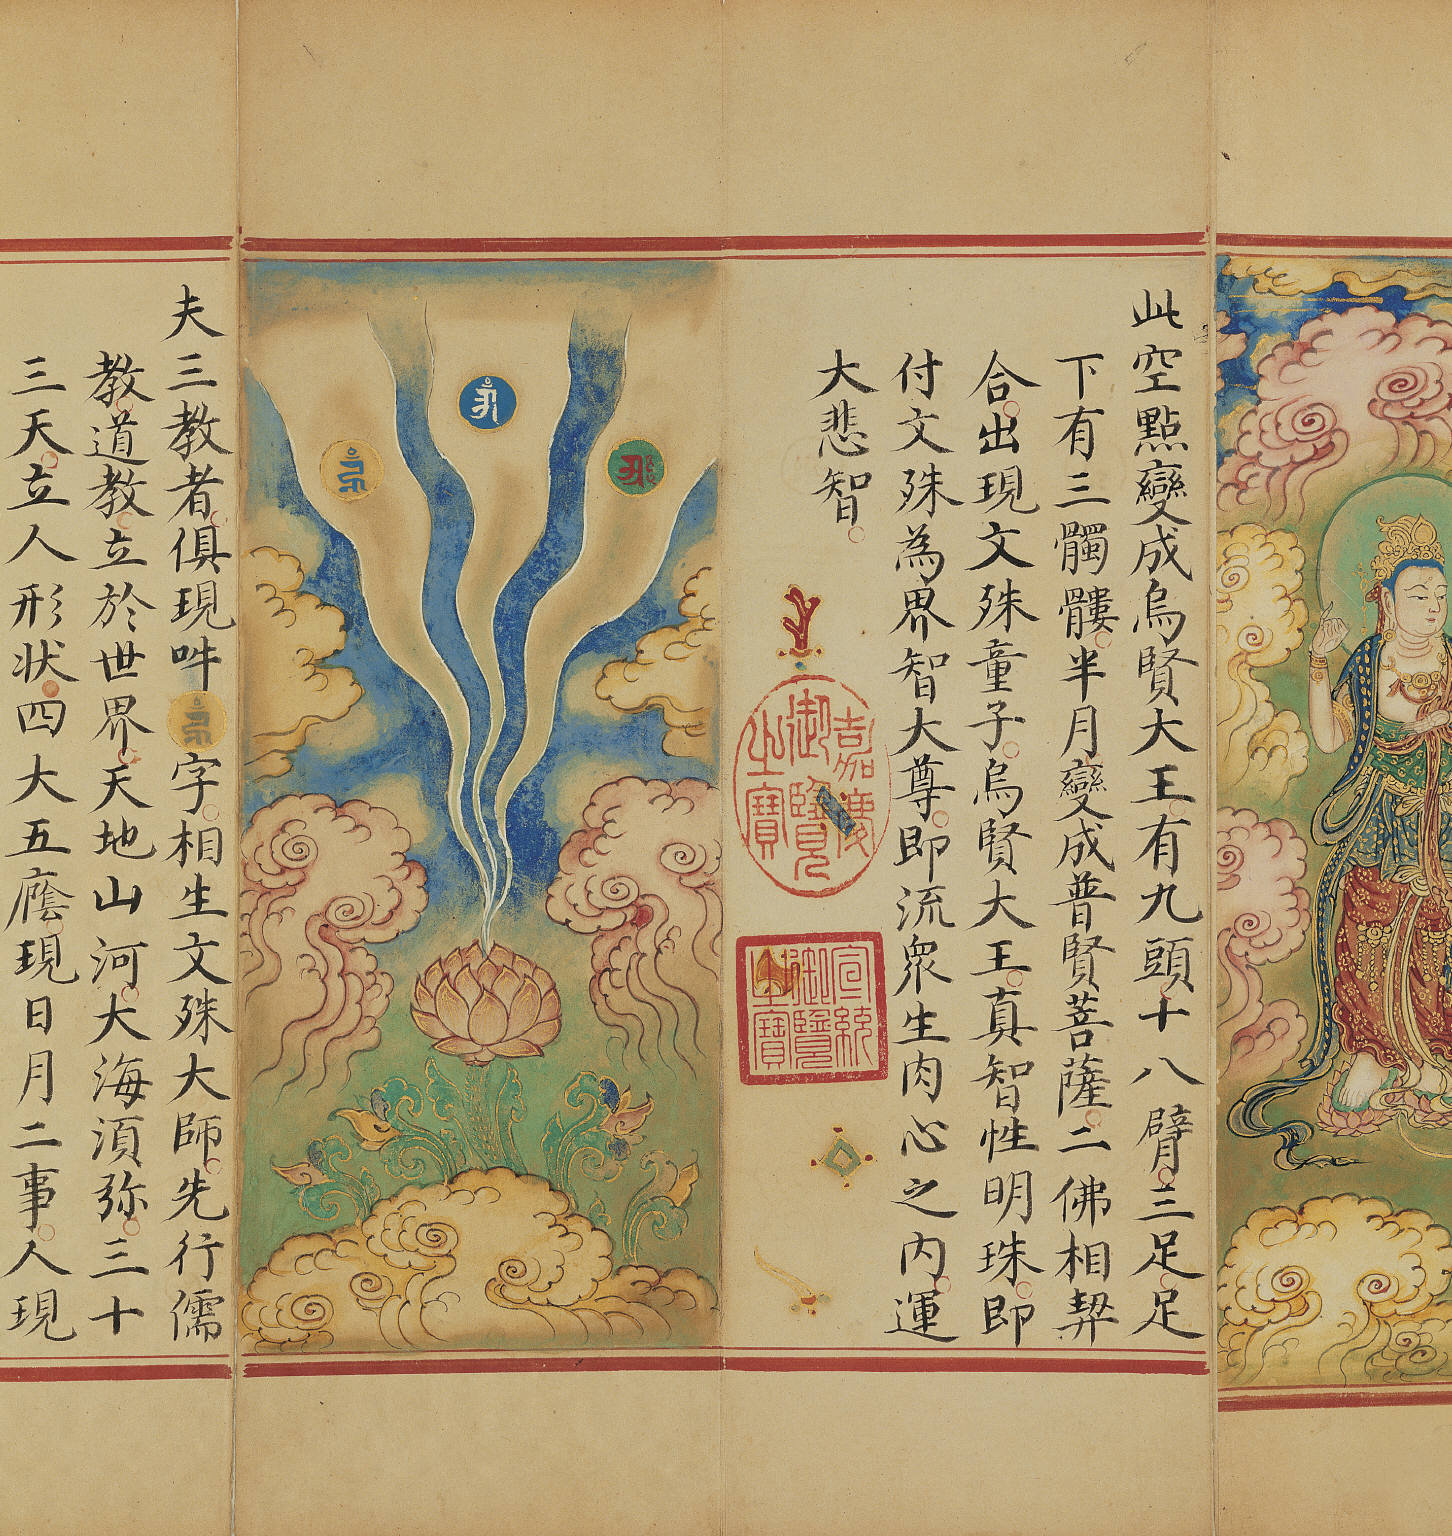 此空點變成烏賢大王有九頭十八臂三足足
下有三髑髏半月變成普賢菩薩二佛相契
合出現文殊童子烏賢大王真智性明珠即
付文殊為界智大尊即流眾生肉心之内運
大悲智
嘉慶
御覽
之寶
宣統
御覽
之寶
夫三教者俱現吽字相生文殊大師先行儒
教道教立於世界天地山河大海湏弥三十
三天立人形狀四大五廕現日月二事人現